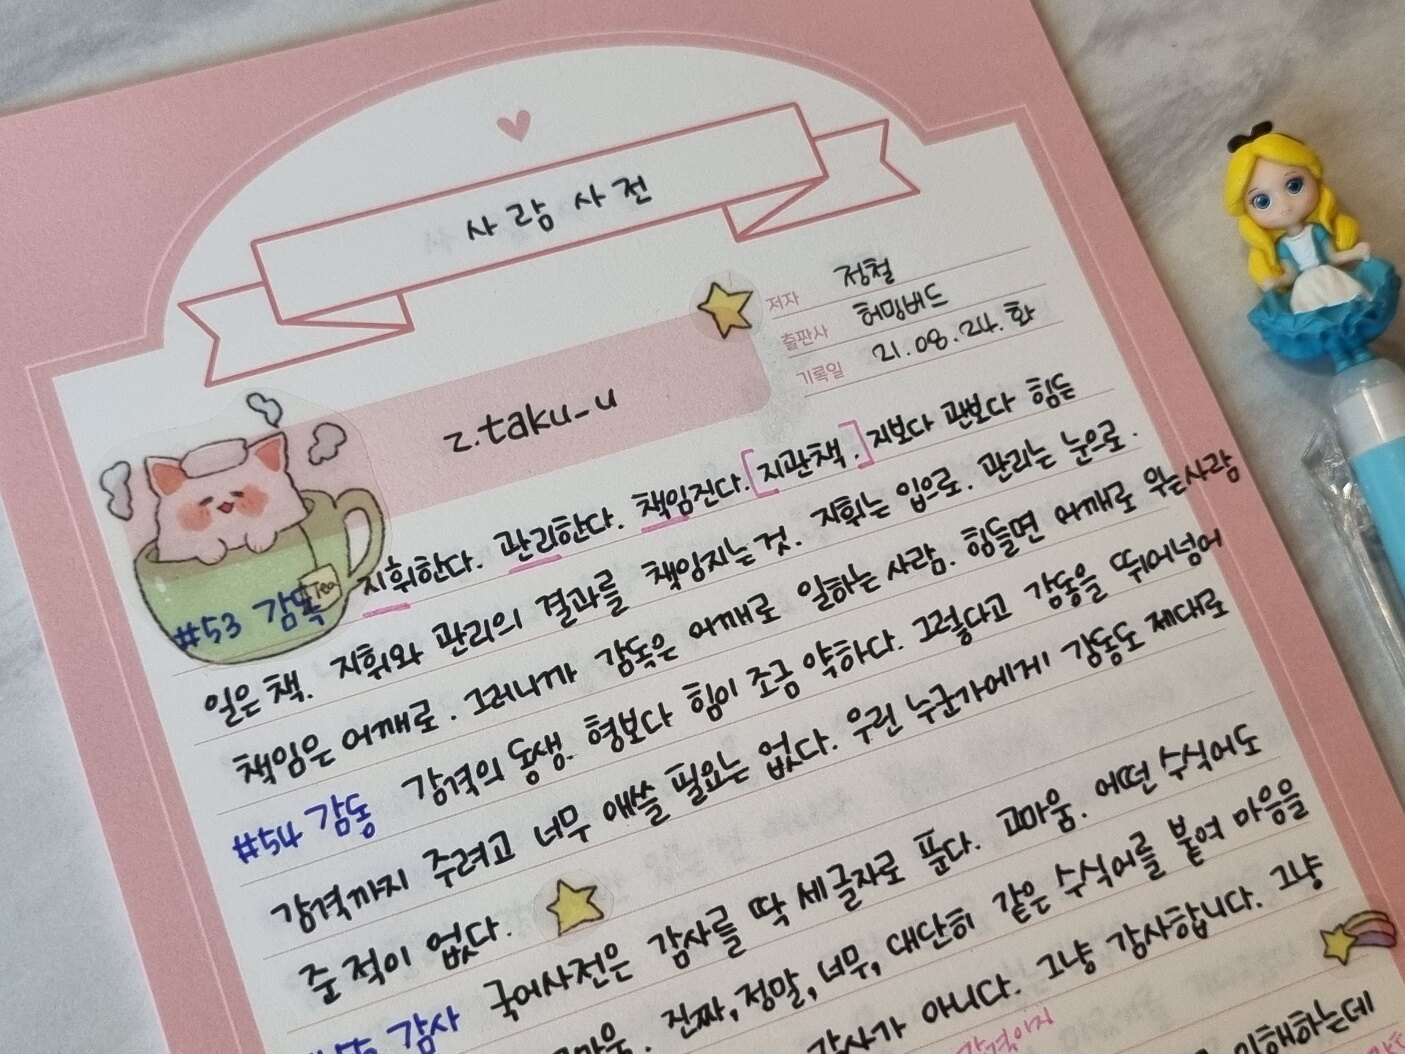 사람사전
저자 정철
출판사 허밍버드
기록일 21.08.24.화
z.taku_u
Tea
#53 감독 지휘한다. 관리한다. 책임진다.[지관책.] 지보다 관보다 힘든
일은 책. 지휘와 관리의 결과를 책임지는 것. 지휘는 입으로. 관리는 눈으로.
책임은 어깨로. 그러니까 감독은 어깨로 일하는 사람. 힘들면 어깨로 우는 사람
#54 감동 감격의 동생. 형보다 힘이 조금 약하다. 그렇다고 감동을 뛰어넘어
감격까지 주려고 너무 애쓸 필요는 없다. 우린 누군가에게 감동도 제대로
준 적이 없다.
감사 국어사전은 감사를 딱 세글자로 푼다. 고마움. 어떤 수식어도
진짜, 정말, 너무, 대단히 같은 수식어를 붙여 마음을
감사가 아니다. 그냥 감사합니다. 그냥
감격이지
이해하는데